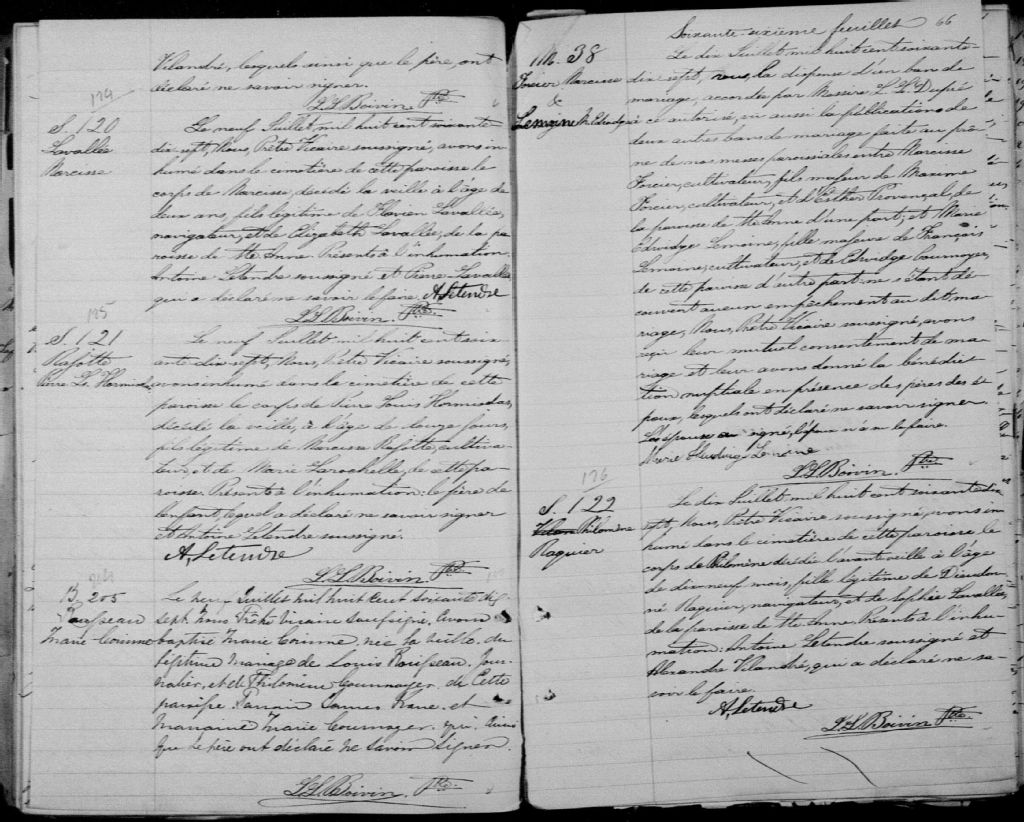 Vilandré, lesquels ainsi que le père, ont
déclaré ne savoir signer.
L. L. Boivin Ptre
124
S. 120
Lavallée
Narcisse
Le neuf Juillet mil huit cent soixante-
dix sept, Nous, Prêtre Vicaire soussigné, avons in
humé dans le cimetière de cette paroisse le
corps de Narcisse, décédé la veille à l'âge de
deux ans, fils légitime de Flavien Lavallée,
navigateur, et de Elizabeth Lavallée, de la pa
roisse de Ste Anne. Présents à l'inhumation,
Antoine Letendre soussigné et Pierre Lavallée
qui a déclaré ne savoir le faire. A, Letendre
L. L. Boivin. Ptre
125
S. 121
Rajotte
Pierre Ls. Hormisdas
Le neuf Juillet mil huit cent soix
ante dix sept, Nous, Prêtre Vicaire soussigné,
avons inhumé dans le cimetière de cette
paroisse le corps de Pierre Louis Hormisdas,
décédé la veille, à l'âge de douze jours,
fils légitime de Narcisse Rajotte, cultiva-
teur, et de Marie Larochelle, de cette pa-
roisse. Présents à l'inhumation: le père de
l'enfant, lequel a déclaré ne savoir signer
et Antoine Letendre soussigné.
A, Letendre
L. L. Boivin Ptre
B. 205
Rousseau
Marie Corinne
Le neuf Juillet mil huit cent soixante dix
sept, nous Prêtre Vicaire soussigné, avons
baptisé Marie Corinne née la veille, du
légitime mariage de Louis Rousseau, Jour-
nalier, et de Philomène Cournoyer, de cette
paroisse Parrain James Kane, et
Marraine Marie Cournoyer. qui, ainsi
que le père ont déclaré ne savoir signer.
L. L. Boivin. Ptre
Soixante-sixième feuillet 66
M. 38
Forcier Narcisse
&
Lemoine M. Edwidge
Le dix Juillet mil huit cent soixante-
dix-sept, vu la dispense d'un ban de
mariage, accordée par Messire L. Z. Dupré
à ce autorisé, vu aussi la publications de
deux autres bans de mariage faite au prô-
ne de nos messes paroissiales entre Narcisse
Forcier, cultivateur, fils majeur de Maxime
Forcier, cultivateur, et d'Esther Provençal, de
la paroisse de Ste Anne d'une part; et Marie
Edwidge Lemoine, fille majeure de François
Lemoine, cultivateur, et de Edwidge Cournoyer,
de cette paroisse d'autre part: ne s'étant dé-
couvert aucun empêchement au dit ma-
riage, Nous, Prêtre Vicaire soussigné, avons
reçu leur mutuel consentement de ma-
riage et leur avons donné la bénédic-
tion nuptiale en présence des pères des é-
poux, lesquels ont déclaré ne savoir signer.
L'épouse a signé, l'époux n'a su le faire.
Marie Edwidge Lemoine
L. L. Boivin. Ptre
126
S. 122
Philomène
Raguier
Le dix Juillet mil huit cent soixante dix
sept, Nous, Prêtre Vicaire soussigné, avons in
humé dans le cimetière de cette paroisse le
corps de Philomène décédée l'avant veille à l'âge
de dix neuf mois, fille légitime de Dieudon-
né Raguier, navigateur, et de Sophie Lavallée,
de la paroisse de Ste Anne. Présents à l'inhu-
mation: Antoine Letendre soussigné et
Alexandre Vilandré, qui a déclaré ne sa-
voir le faire.
A, Letendre
L. L. Boivin Ptre